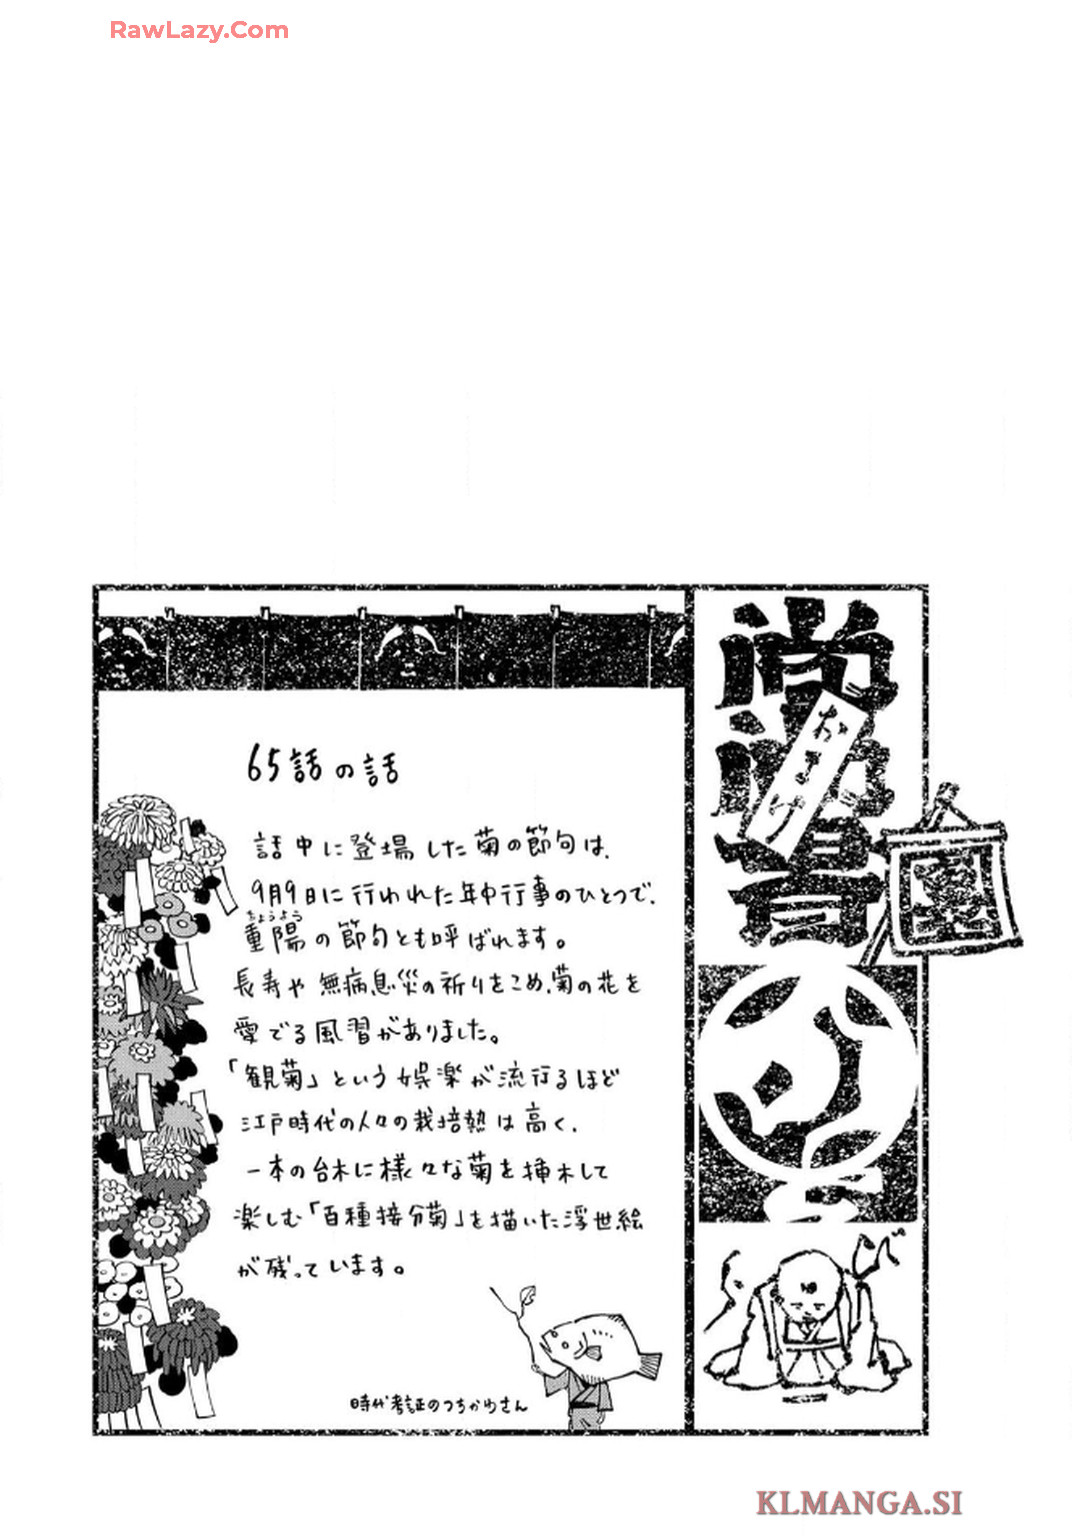 RawLazy.Com
65話の話
話中に登場した菊の節句は、
9月9日に行われた年中行事のひとつで、
ちょうよう
重陽の節句とも呼ばれます。
長寿や無病息災の祈りをこめ、菊の花を
愛でる風習がありました。
「観菊」という娯楽が流行るほど
江戸時代の人々の栽培熱は高く、
一本の台木に様々な菊を挿木して
楽しむ「百種接分菊」を描いた浮世絵
が残っています。
時代考証のつちかわさん
おまけ
KLMANGA.SI